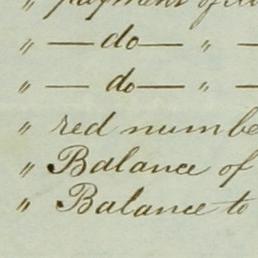 " payment of
" — do — " —
" — do — " —
" red numbe
" Balance of
" Balance to